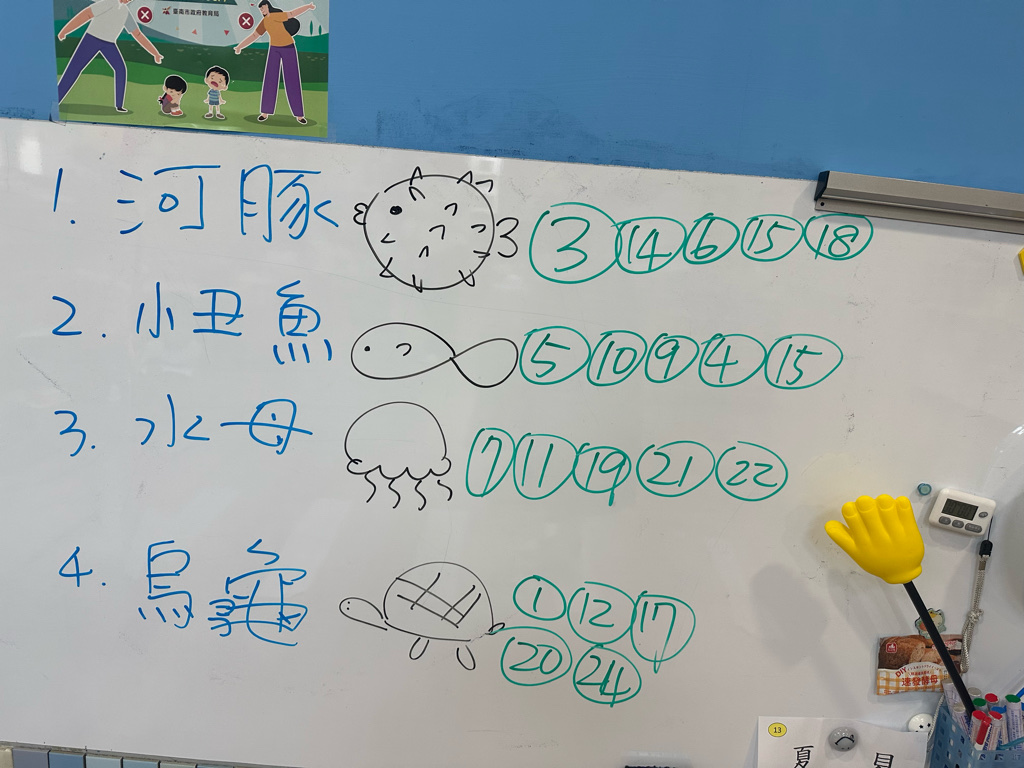 臺南市政府教育局
1. 河豚 3 14 6 15 18
2. 小丑魚 5 10 9 4 15
3. 水母 7 11 19 21 22
4. 烏龜 1 12 17
20 24
DIY
速發酵母
13
夏